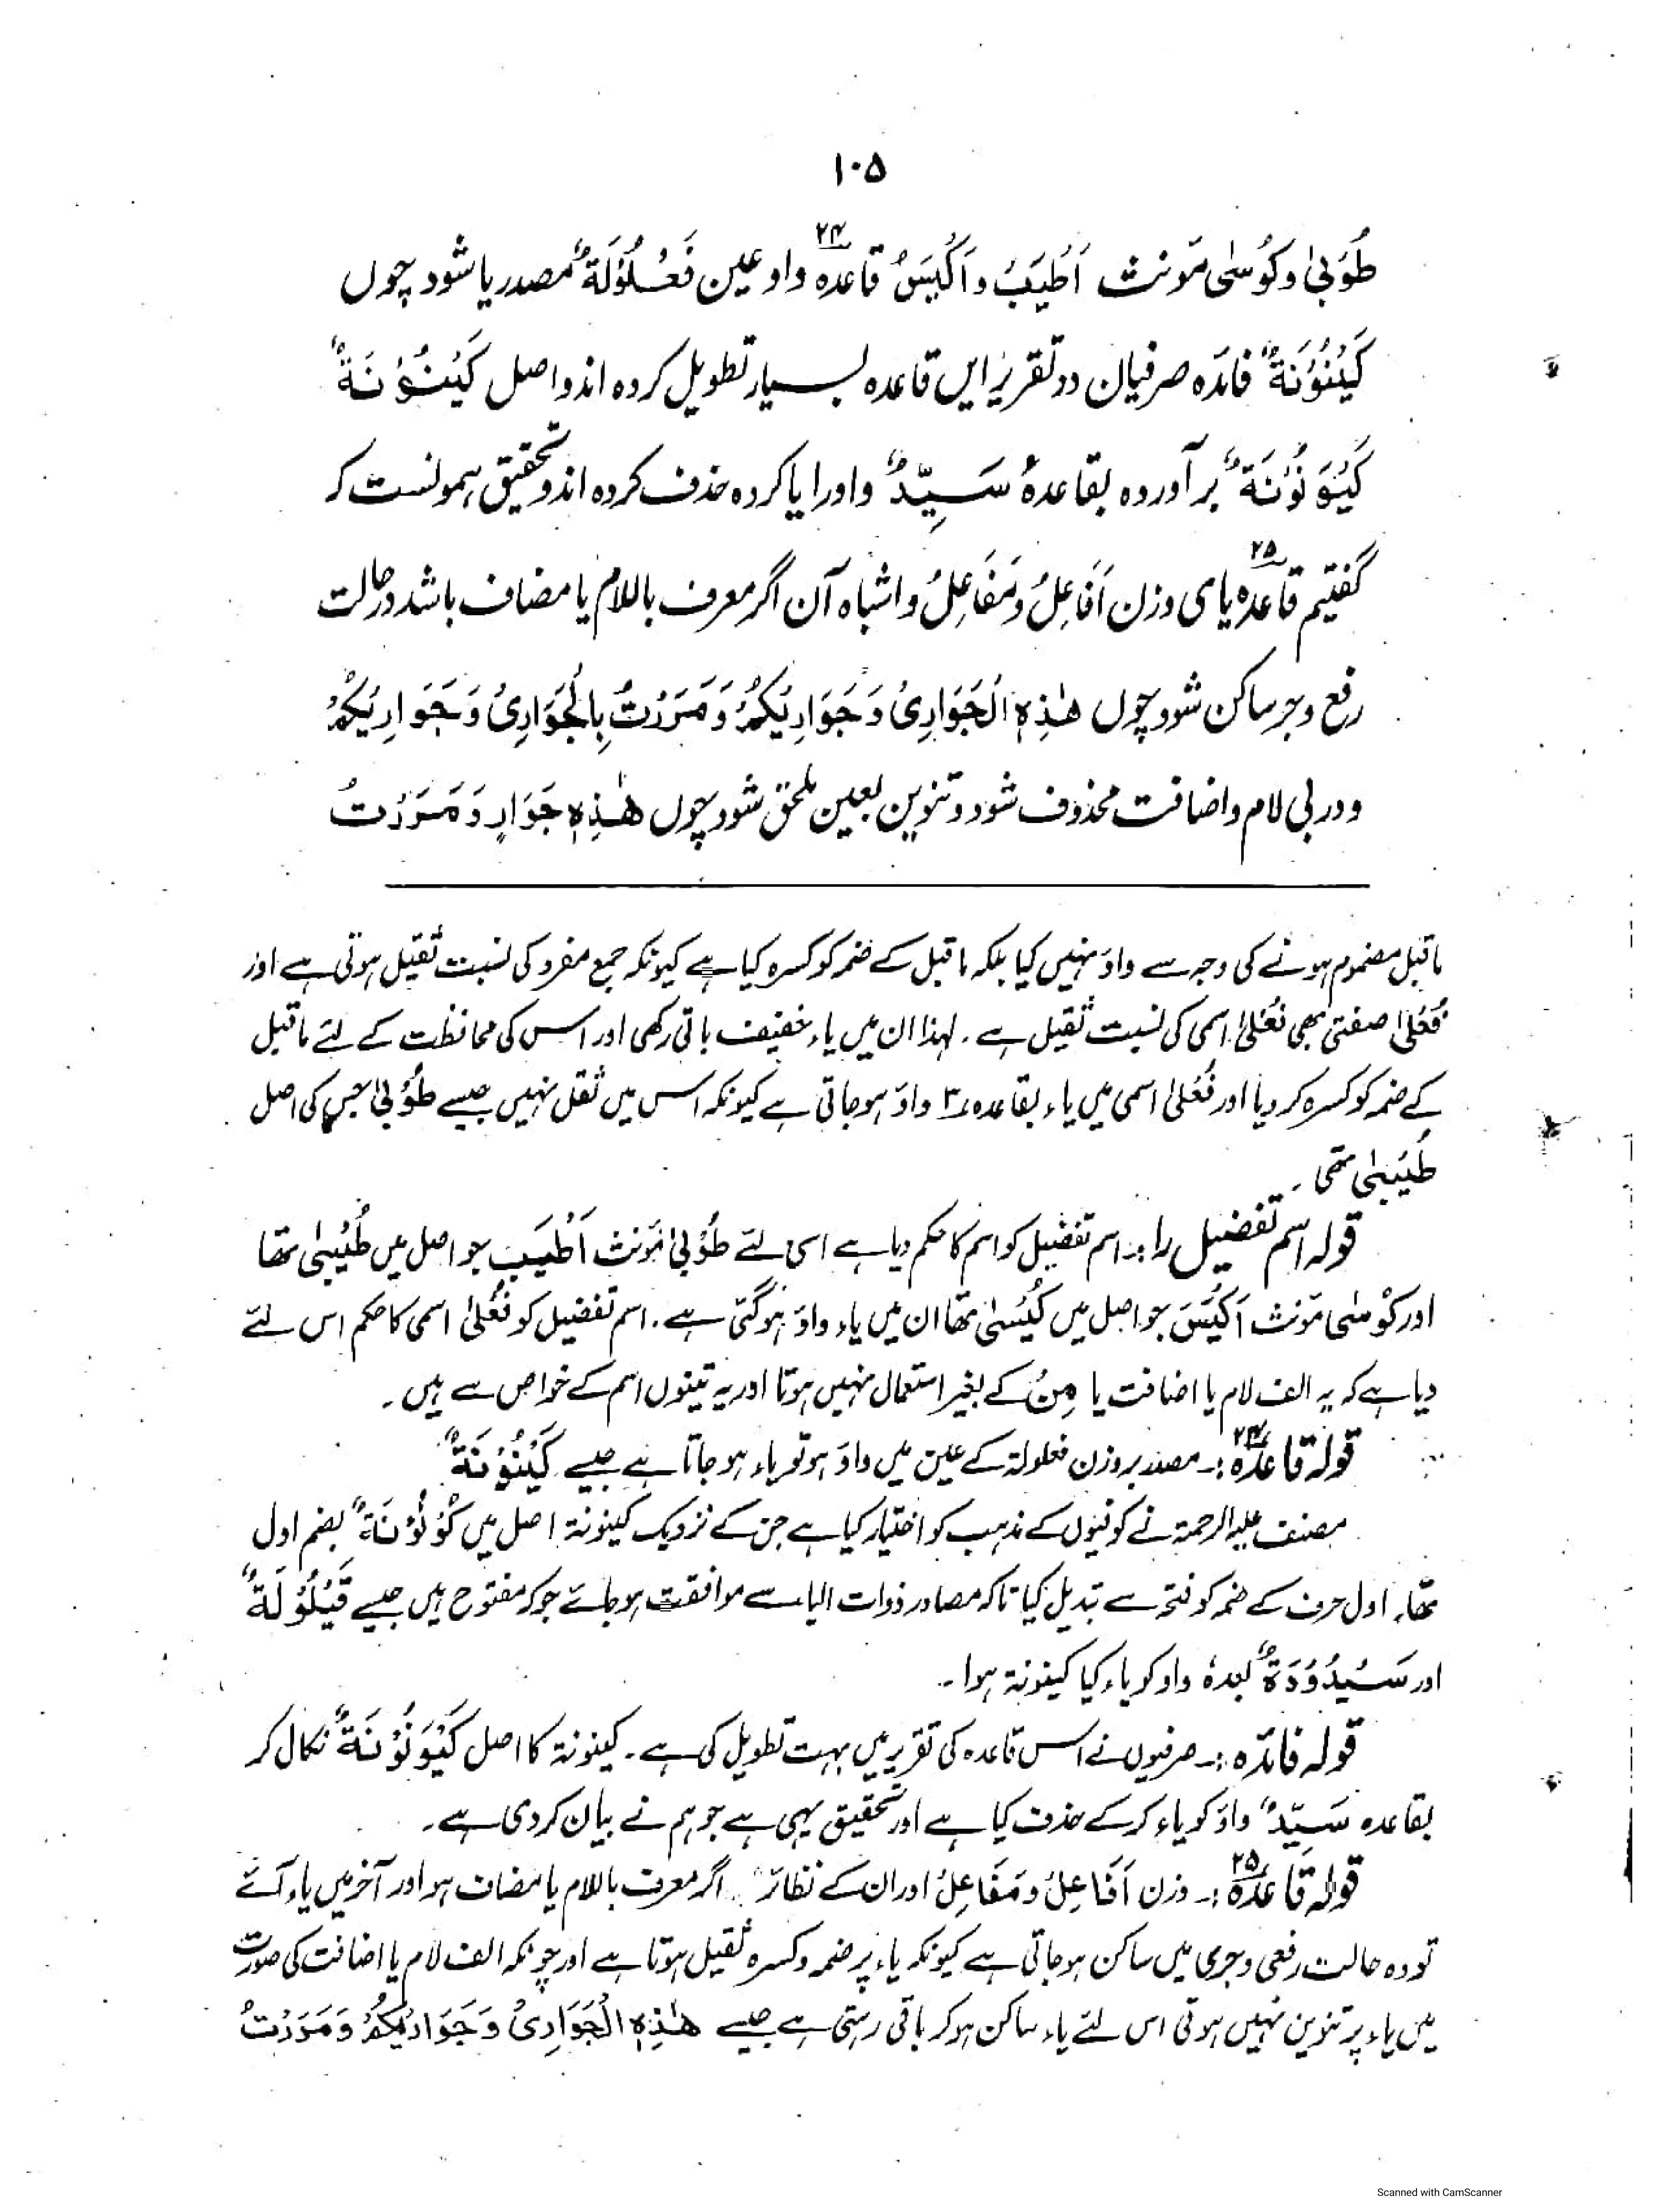 ۱۰۵
طُوْبیٰ وکُوْسیٰ مؤنث اَطْیَبُ واَکْیَسُ قاعدہ ۲۴ واو عین فَعْلُوْلَةٌ مصدر یا شود چوں
کَیْنُوْنَةٌ فائدہ صرفیان در تقریر ایں قاعدہ بسیار تطویل کردہ اند واصل کَیْنُوْنَةٌ
کَیْوَنُوْنَةٌ برآوردہ بقاعدۂ سَیِّدٌ واورا یا کردہ حذف کردہ اند وتحقیق ہمونست کہ
گفتیم قاعدہ ۲۵ یای وزن اَفَاعِلُ ومَفَاعِلُ واشباہ آن اگر معرف باللام یا مضاف باشد درحالت
رفع وجر ساکن شود چوں ھٰذِہِ الْجَوَارِیْ وَجَوَارِیْکُمْ وَمَرَرْتُ بِالْجَوَارِیْ وَجَوَارِیْکُمْ
ودر بی لام واضافت محذوف شود وتنوین بعین ملحق شود چوں ھٰذِہٖ جَوَارٍ وَمَرَرْتُ
ماقبل مضموم ہونے کی وجہ سے واؤ نہیں کیا بلکہ ماقبل کے ضمہ کو کسرہ کیا ہے کیونکہ جمع مفرد کی نسبت ثقیل ہوتی ہے اور
فُعْلیٰ صفتی بھی فُعْلیٰ اسمی کی نسبت ثقیل ہے۔ لہذا ان میں یاء خفیف باقی رکھی اور اس کی محافظت کے لئے ماقبل
کے ضمہ کو کسرہ کر دیا اور فُعْلیٰ اسمی میں یاء بقاعدہ ۳ واؤ ہو جاتی ہے کیونکہ اس میں ثقل نہیں جیسے طُوْبیٰ جس کی اصل
طُیْبیٰ تھی۔
قولہ اسم تفضیل را:۔ اسم تفضیل کو اسم کا حکم دیا ہے اسی لئے طُوْبیٰ مؤنث اَطْیَب جو اصل میں طُیْبیٰ تھا
اور کُوْسیٰ مؤنث اَکْیَسَ جو اصل میں کُیْسیٰ تھا ان میں یاء واؤ ہو گئی ہے۔ اسم تفضیل کو فُعْلیٰ اسمی کا حکم اس لئے
دیا ہے کہ یہ الف لام یا اضافت یا مِنْ کے بغیر استعمال نہیں ہوتا اور یہ تینوں اسم کے خواص سے ہیں۔
قولہ قاعدہ ۲۴:۔ مصدر بروزن فعلولة کے عین میں واؤ ہو تو یاء ہو جاتا ہے جیسے کَیْنُوْنَةٌ
مصنف علیہ الرحمۃ نے کوفیوں کے مذہب کو اختیار کیا ہے جن کے نزدیک کینونة اصل میں کُوْنُوْنَةٌ بضم اول
تھا۔ اول حرف کے ضمہ کو فتحہ سے تبدیل کیا تاکہ مصادر ذوات الیاء سے موافقت ہو جائے جو کہ مفتوح ہیں جیسے قَیْلُوْلَةٌ
اور سَیْدُوْدَةٌ بعدہٗ واو کو یاء کیا کینونة ہوا۔
قولہ فائدہ:۔ صرفیوں نے اس قاعدہ کی تقریر میں بہت تطویل کی ہے۔ کینونة کا اصل کَیْوَنُوْنَةٌ نکال کر
بقاعدہ سَیِّدٌ واؤ کو یاء کر کے حذف کیا ہے اور تحقیق یہی ہے جو ہم نے بیان کر دی ہے۔
قولہ قاعدہ ۲۵:۔ وزن اَفَاعِلُ ومَفَاعِلُ اور ان کے نظائر اگر معرف باللام یا مضاف ہو اور آخر میں یاء آئے
تو وہ حالت رفعی وجری میں ساکن ہو جاتی ہے کیونکہ یاء پر ضمہ وکسرہ ثقیل ہوتا ہے اور چونکہ الف لام یا اضافت کی صورت
میں یاء پر تنوین نہیں ہوتی اس لئے یاء ساکن ہو کر باقی رہتی ہے جیسے ھٰذِہِ الْجَوَارِیْ وَجَوَارِیْکُمْ وَمَرَرْتُ
Scanned with CamScanner